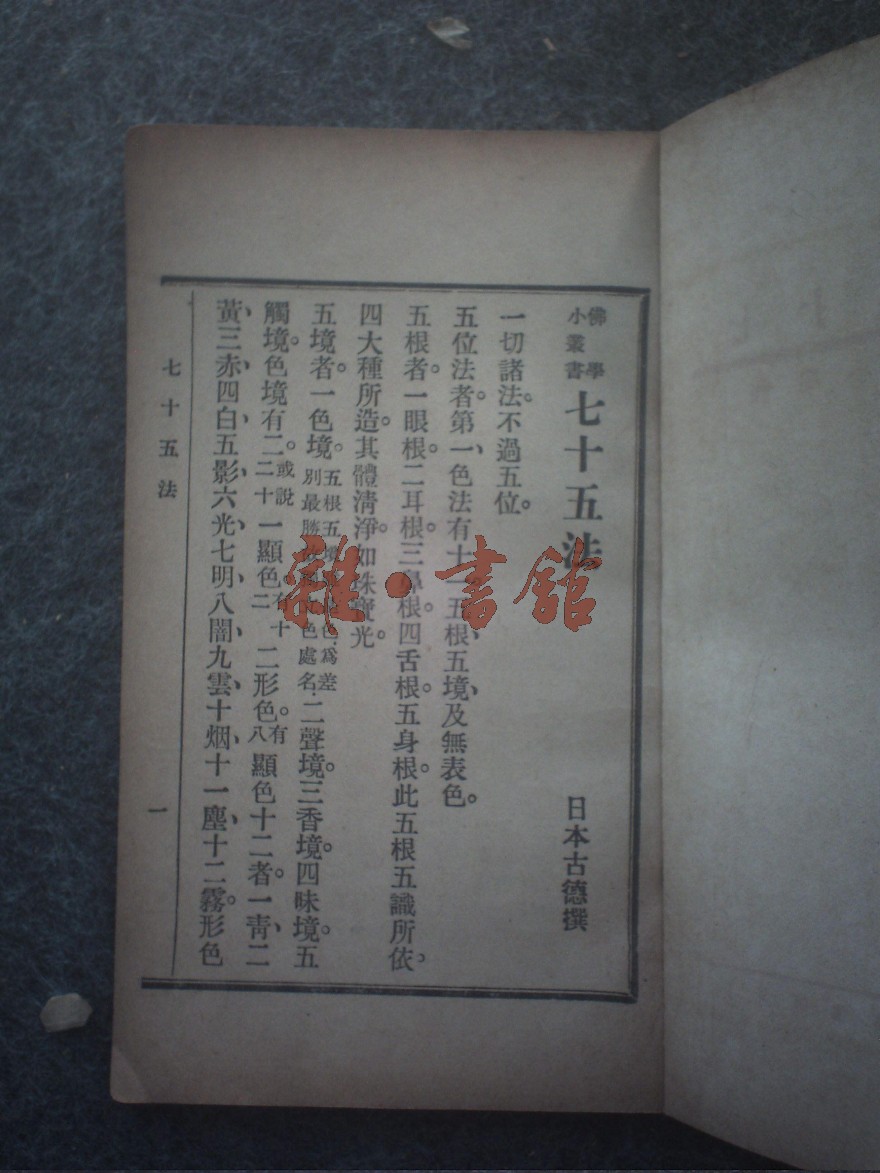 佛學小叢書
七十五法
日本古德撰
一切諸法。不過五位。
五位法者。第一色法有十一。五根、五境、及無表色。
五根者。一眼根。二耳根。三鼻根。四舌根。五身根。此五根五識所依，
四大種所造。其體清淨。如珠寶光。
五境者。一色境。五根五境 色、爲差別最勝 色處名．二聲境。三香境。四味境。五
觸境。色境有二。或說二十一顯色。有十二二形色。有八顯色十二者。一靑、二
黃、三赤、四白、五影、六光、七明、八闇、九雲、十烟、十一塵、十二霧。形色
七十五法
一
雜·書館